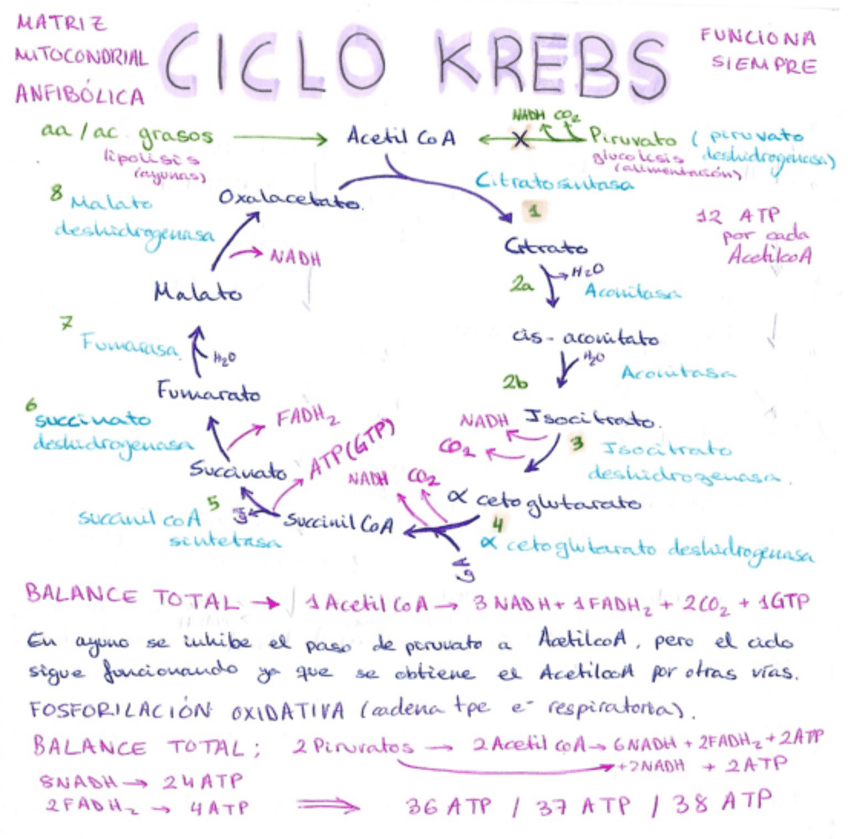 MATRIZ
MITOCONDRIAL
ANFIBÓLICA
CICLO KREBS
FUNCIONA
SIEMPRE
aa / ac. grasos
lipolisis
(ayunas)
Acetil CoA
X
NADH CO2
Piruvato (piruvato
deshidrogenasa)
glucolisis
(alimentación)
Citratosintasa
1
12 ATP
por cada
AcetilcoA
8 Malato
deshidrogenasa
Oxalacetato.
NADH
Citrato
2a
H2O
Aconitasa
Malato
cis-aconitato
7
Fumarasa
H2O
2b
H2O
Aconitasa
Fumarato
6
succinato
deshidrogenasa
FADH2
Isocitrato.
NADH
CO2
3 Isocitrato
deshidrogenasa.
Succinato
ATP(GTP)
NADH CO2
α cetoglutarato
5
succinil coA
sintetasa
Succinil CoA
4
α cetoglutarato deshidrogenasa
BALANCE TOTAL → 1 Acetil CoA → 3 NADH + 1FADH2 + 2CO2 + 1GTP
En ayuno se inhibe el paso de piruvato a AcetilcoA, pero el ciclo
sigue funcionando ya que se obtiene el AcetilcoA por otras vías.
FOSFORILACIÓN OXIDATIVA (cadena tpe e- respiratoria).
BALANCE TOTAL: 2 Piruvatos → 2 Acetil coA → 6NADH + 2FADH2 + 2ATP
+2NADH + 2ATP
8NADH → 24ATP
2FADH2 → 4ATP ⇒ 36 ATP / 37 ATP / 38 ATP